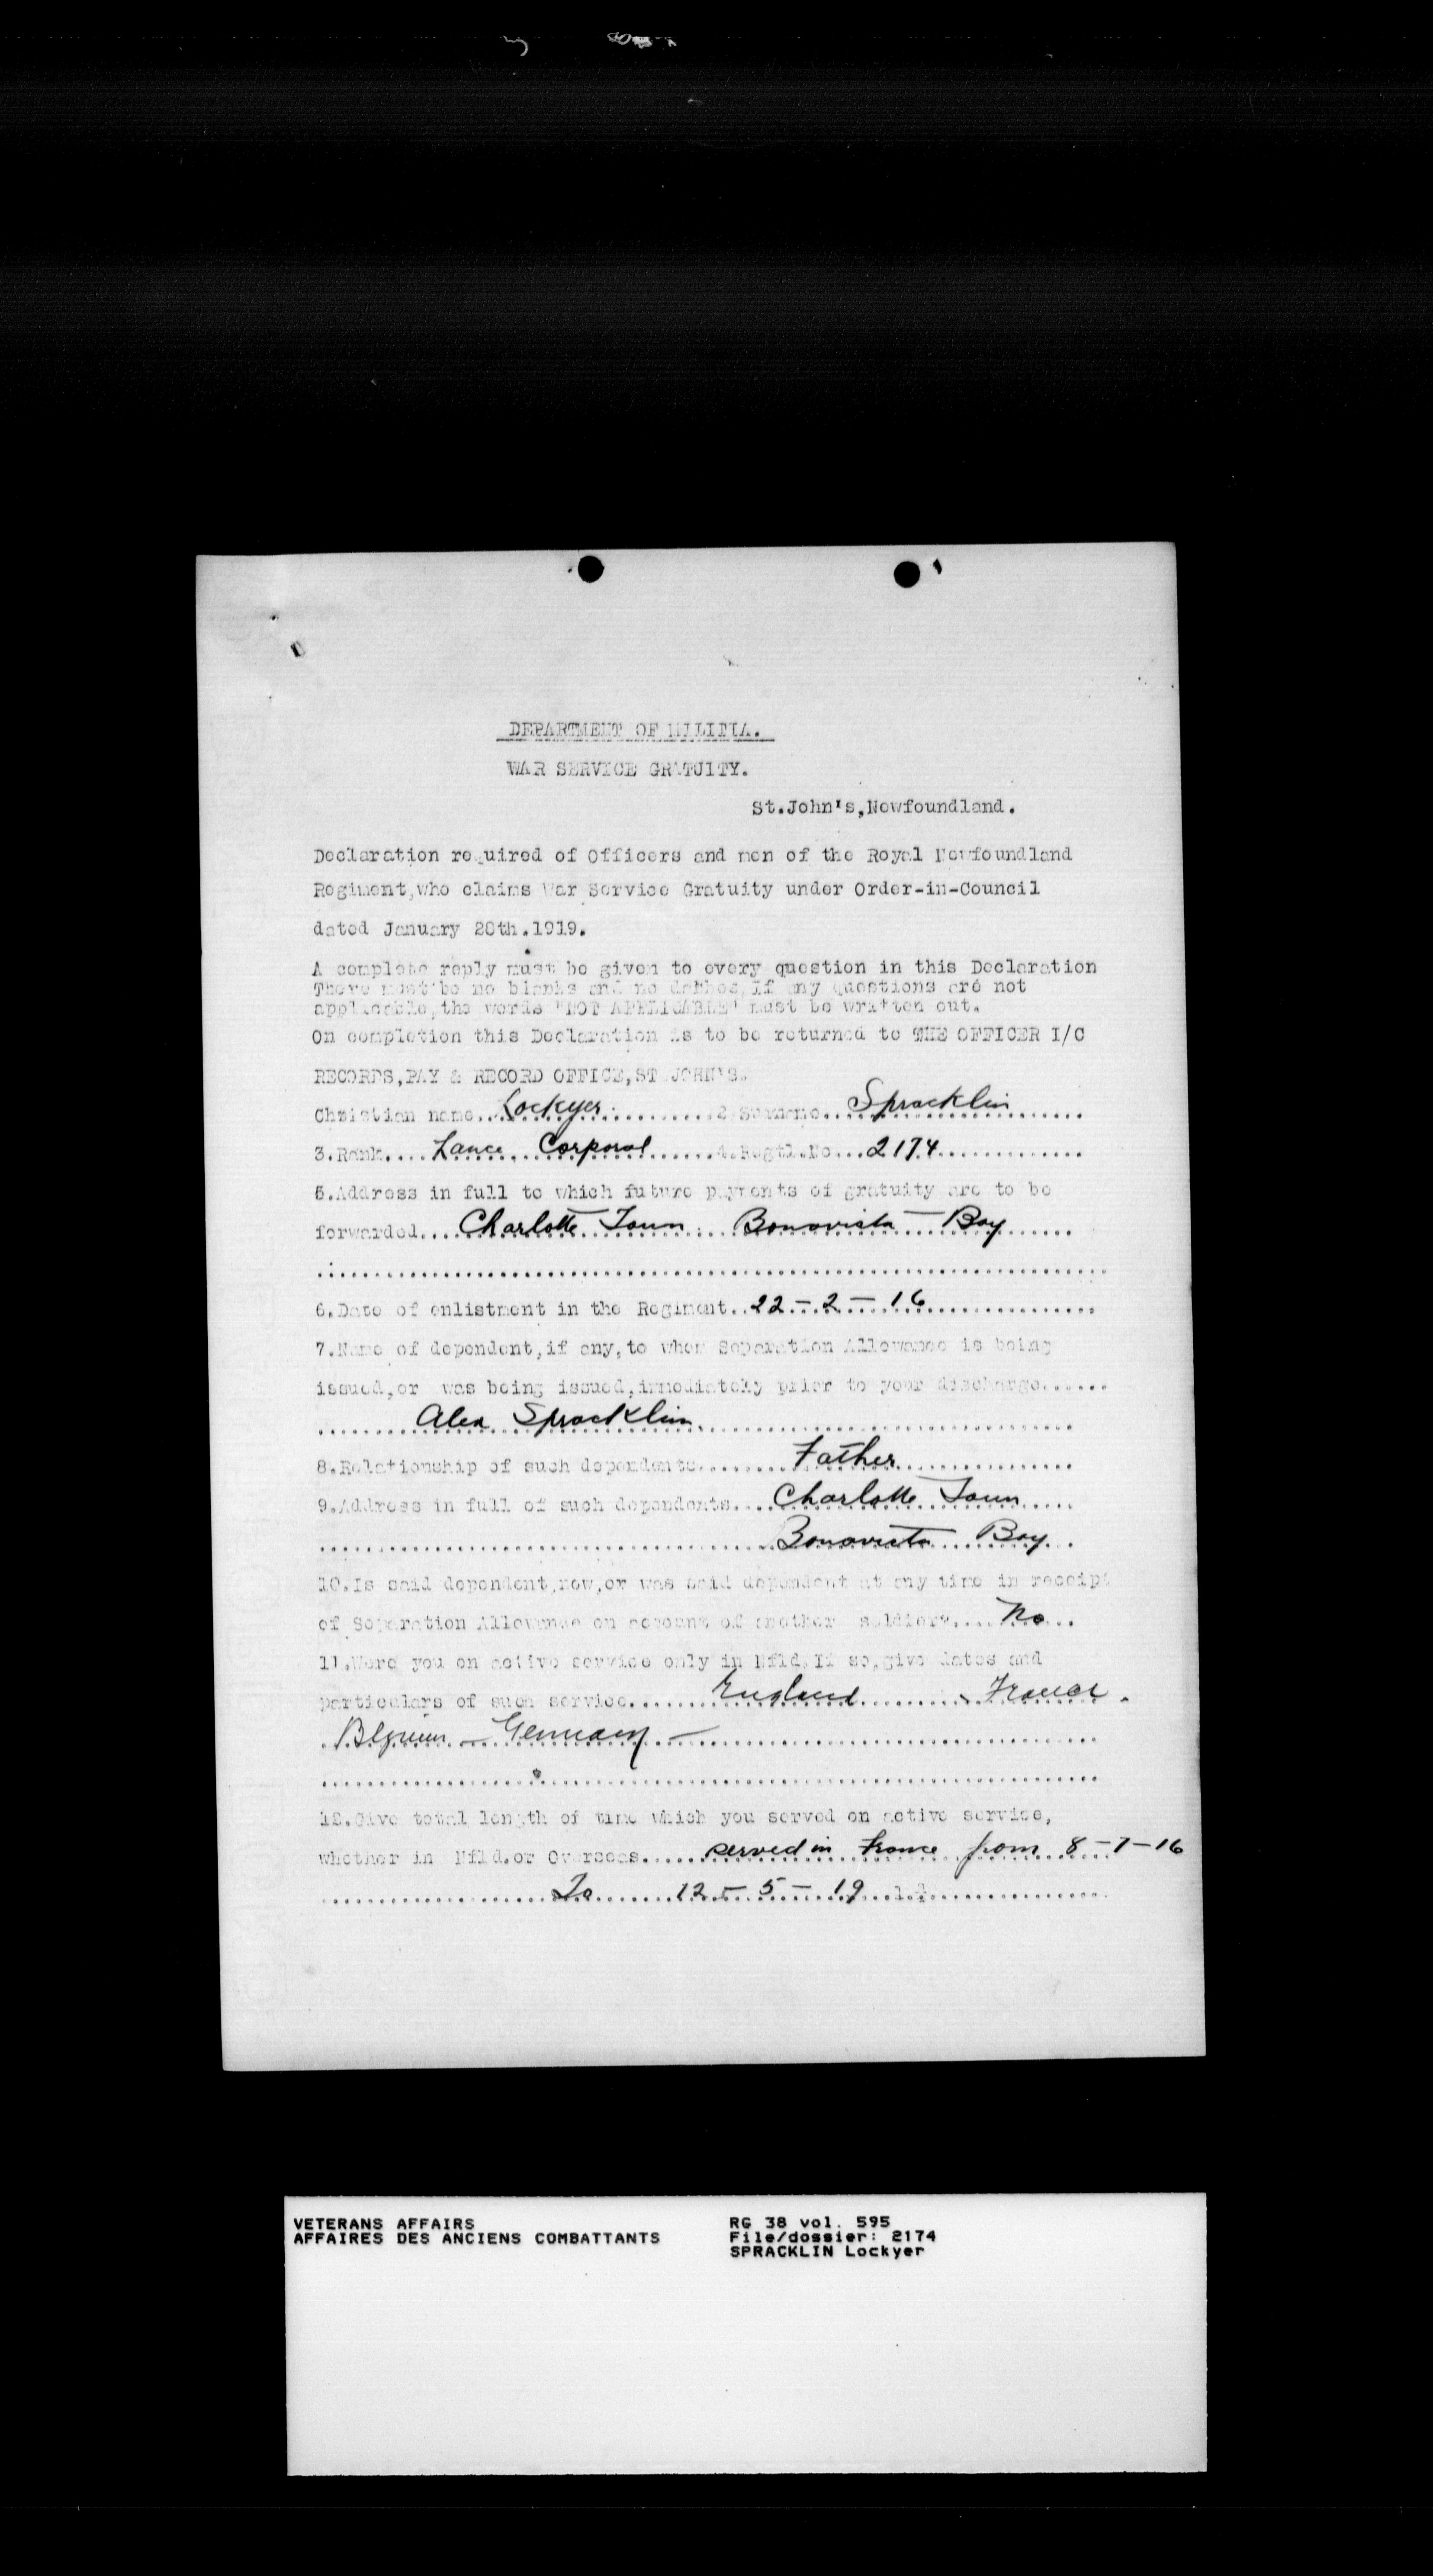 DEPARTMENT OF MILITIA.
WAR SERVICE GRATUITY.
St.John's,Newfoundland.
Declaration required of Officers and men of the Royal Newfoundland
Regiment,who claims War Service Gratuity under Order-in-Council
dated January 28th.1919.
A complete reply must be given to every question in this Declaration
There must be no blanks and no dashes,If any questions are not
applicable,the words "NOT APPLICABLE" must be written out.
On completion this Declaration is to be returned to THE OFFICER I/C
RECORDS,PAY & RECORD OFFICE,ST JOHN'S.
Christian name..Lockyer...........2.Surname..Spracklin......
3.Rank....Lance Corporal......4.Regtl.No...2174.............
5.Address in full to which future payments of gratuity are to be
forwarded....Charlotte Town. Bonavista Bay......
6.Date of enlistment in the Regiment..22-2-16...............
7.Name of dependent,if any,to whom Separation Allowance is being
issued,or was being issued,immediately prior to your discharge......
........Alex Spracklin..........................
8.Relationship of such dependents........Father................
9.Address in full of such dependents....Charlotte Town.....
Bonavista Bay...
10.Is said dependent,now,or was said dependent at any time in receipt
of Separation Allowance on account of another soldier?....No...
11.Were you on active service only in Nfld,If so,give dates and
particulars of such service......England..........France.
Blgium - Germany -
12.Give total length of time which you served on active service,
whether in Nfld.or Overseas......served in France from 8-7-16
To 12-5-19
VETERANS AFFAIRS
AFFAIRES DES ANCIENS COMBATTANTS
RG 38 vol. 595
File/dossier: 2174
SPRACKLIN Lockyer